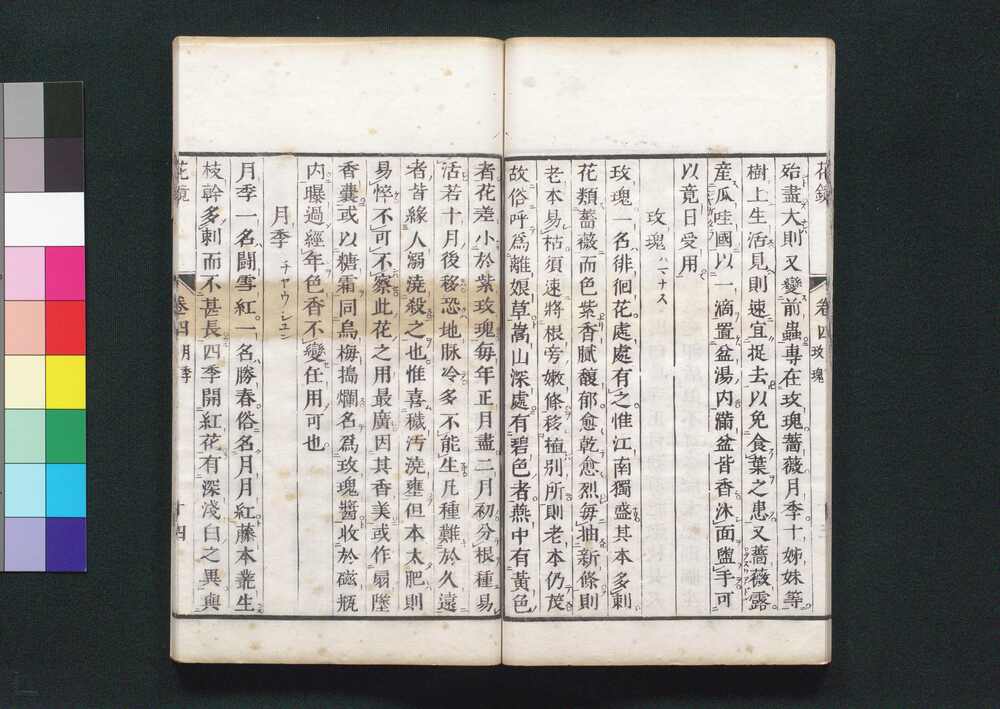 花鏡 卷四 玫瑰
殆盡大則又變前蟲專在玫瑰薔薇月季十姊妹等
樹上生活見則速宜捉去以免食葉之患又薔薇露
產瓜哇國以一滴置盆湯內滿盆皆香沐面盥手可
以竟日受用
玫瑰 ハマナス
玫瑰一名徘徊花處處有之惟江南獨盛其本多刺
花類薔薇而色紫香膩馥郁愈乾愈烈每抽新條則
老本易枯須速將根旁嫩條移植別所則老本仍茂
故俗呼爲離娘草嵩山深處有碧色者燕中有黃色
者花差小於紫玫瑰每年正月盡二月初分根種易
活若十月後移恐地脉冷多不能生凡種難於久遠
者皆緣人溺澆殺之也惟喜穢汚澆壅但本太肥則
易悴不可不察此花之用最廣因其香美或作扇墜
香囊或以糖霜同烏梅搗爛名爲玫瑰醬收於磁瓶
內曝過經年色香不變任用可也
月季 チヤウシユン
月季一名鬪雪紅一名勝春俗名月月紅藤本叢生
枝幹多刺而不甚長四季開紅花有深淺白之異與
花鏡 卷四 月季 十四